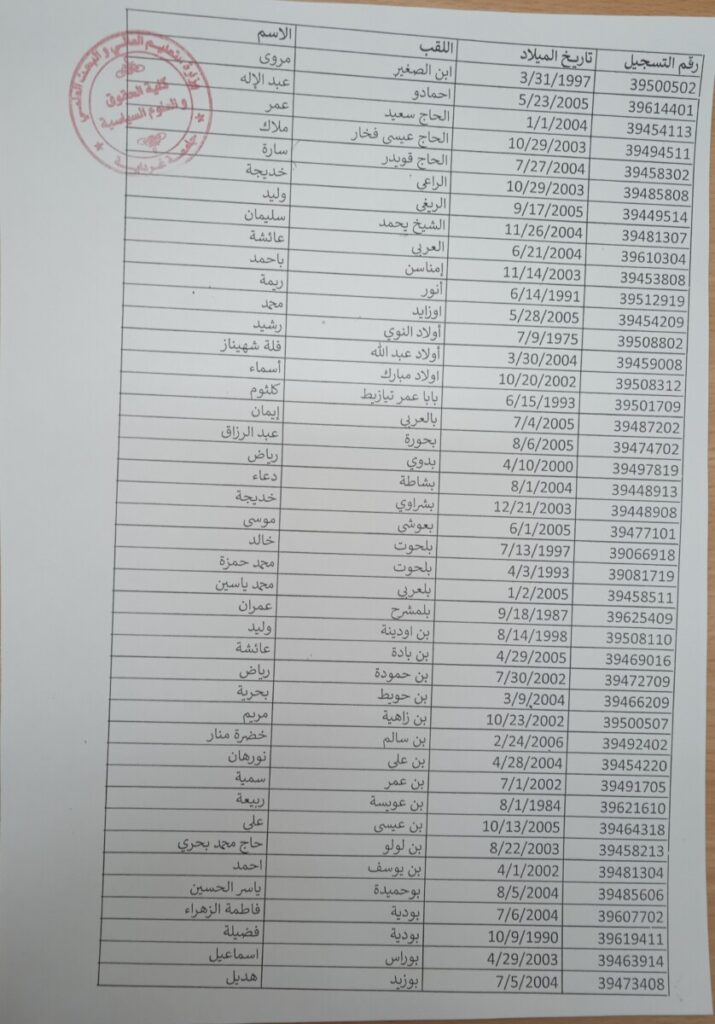 رقم التسجيل تاريخ الميلاد اللقب الاسم
39500502 3/31/1997 ابن الصغير مروى
39614401 5/23/2005 احمادو عبد الإله
39454113 1/1/2004 الحاج سعيد عمر
39494511 10/29/2003 الحاج عيسى فخار ملاك
39458302 7/27/2004 الحاج قويدر سارة
39485808 10/29/2003 الراعي خديجة
39449514 9/17/2005 الريغي وليد
39481307 11/26/2004 الشيخ يحمد سليمان
39610304 6/21/2004 العربي عائشة
39453808 11/14/2003 إمناسن باحمد
39512919 6/14/1991 أنور ريمة
39454209 5/28/2005 اوزايد محمد
39508802 7/9/1975 أولاد النوي رشيد
39459008 3/30/2004 أولاد عبد الله فلة شهيناز
39508312 10/20/2002 اولاد مبارك أسماء
39501709 6/15/1993 بابا عمر تيازيط كلثوم
39487202 7/4/2005 بالعربي إيمان
39474702 8/6/2005 بحورة عبد الرزاق
39497819 4/10/2000 بدوي رياض
39448913 8/1/2004 بشاطة دعاء
39448908 12/21/2003 بشراوي خديجة
39477101 6/1/2005 بعوشى موسى
39066918 7/13/1997 بلحوت خالد
39081719 4/3/1993 بلحوت محمد حمزة
39458511 1/2/2005 بلعربي محمد ياسين
39625409 9/18/1987 بلمشرح عمران
39508110 8/14/1998 بن اودينة وليد
39469016 4/29/2005 بن بادة عائشة
39472709 7/30/2002 بن حمودة رياض
39466209 3/9/2004 بن حويط بحرية
39500507 10/23/2002 بن زاهية مريم
39492402 2/24/2006 بن سالم خضرة منار
39454220 4/28/2004 بن علي نورهان
39491705 7/1/2002 بن عمر سمية
39621610 8/1/1984 بن عويسة ربيعة
39464318 10/13/2005 بن عيسى علي
39458213 8/22/2003 بن لولو حاج محمد بحري
39481304 4/1/2002 بن يوسف احمد
39485606 8/5/2004 بوحميدة ياسر الحسين
39607702 7/6/2004 بودية فاطمة الزهراء
39619411 10/9/1990 بودية فضيلة
39463914 4/29/2003 بوراس اسماعيل
39473408 7/5/2004 بوزيد هديل
وزارة التعليم العالي و البحث العلمي
كلية الحقوق
و العلوم السياسية
جامعة غرداية